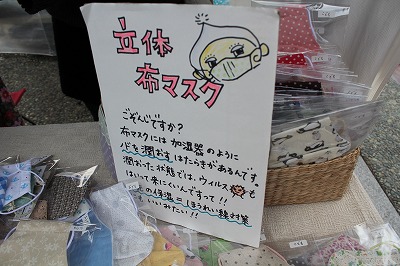 立体
布マスク
ごぞんじですか?
布マスクには加湿器のように
を潤おすはたらきがあるんです。
潤おった状態では、ウイルスも
はいって来にくいんですって!!
の保湿=ほうれい線対策
いいみたい!!